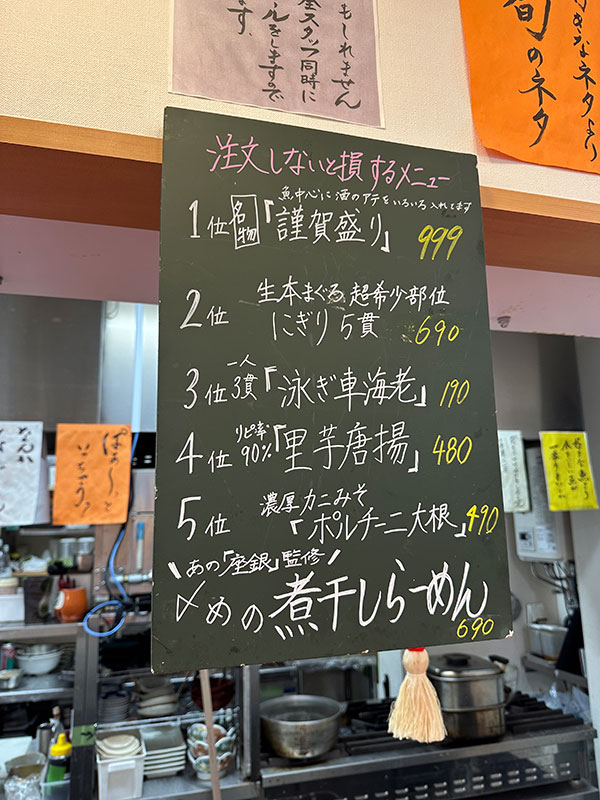 もしれません
スタッフ同時に
ルをしますので
ます。
好きなネタより
旬のネタ
注文しないと損するメニュー
魚中心に酒のアテをいろいろ入れてます
1位 名物「謹賀盛り」 999
2位 生本まぐろ超希少部位
にぎり5貫 690
3位 一人3貫「泳ぎ車海老」 190
4位 リピ率90%「里芋唐揚」 480
5位 濃厚カニみそ
「ポルチーニ大根」 490
\あの「座銀」監修/
〆めの煮干しらーめん
690
ぱぁ〜っと
いっちゃう?